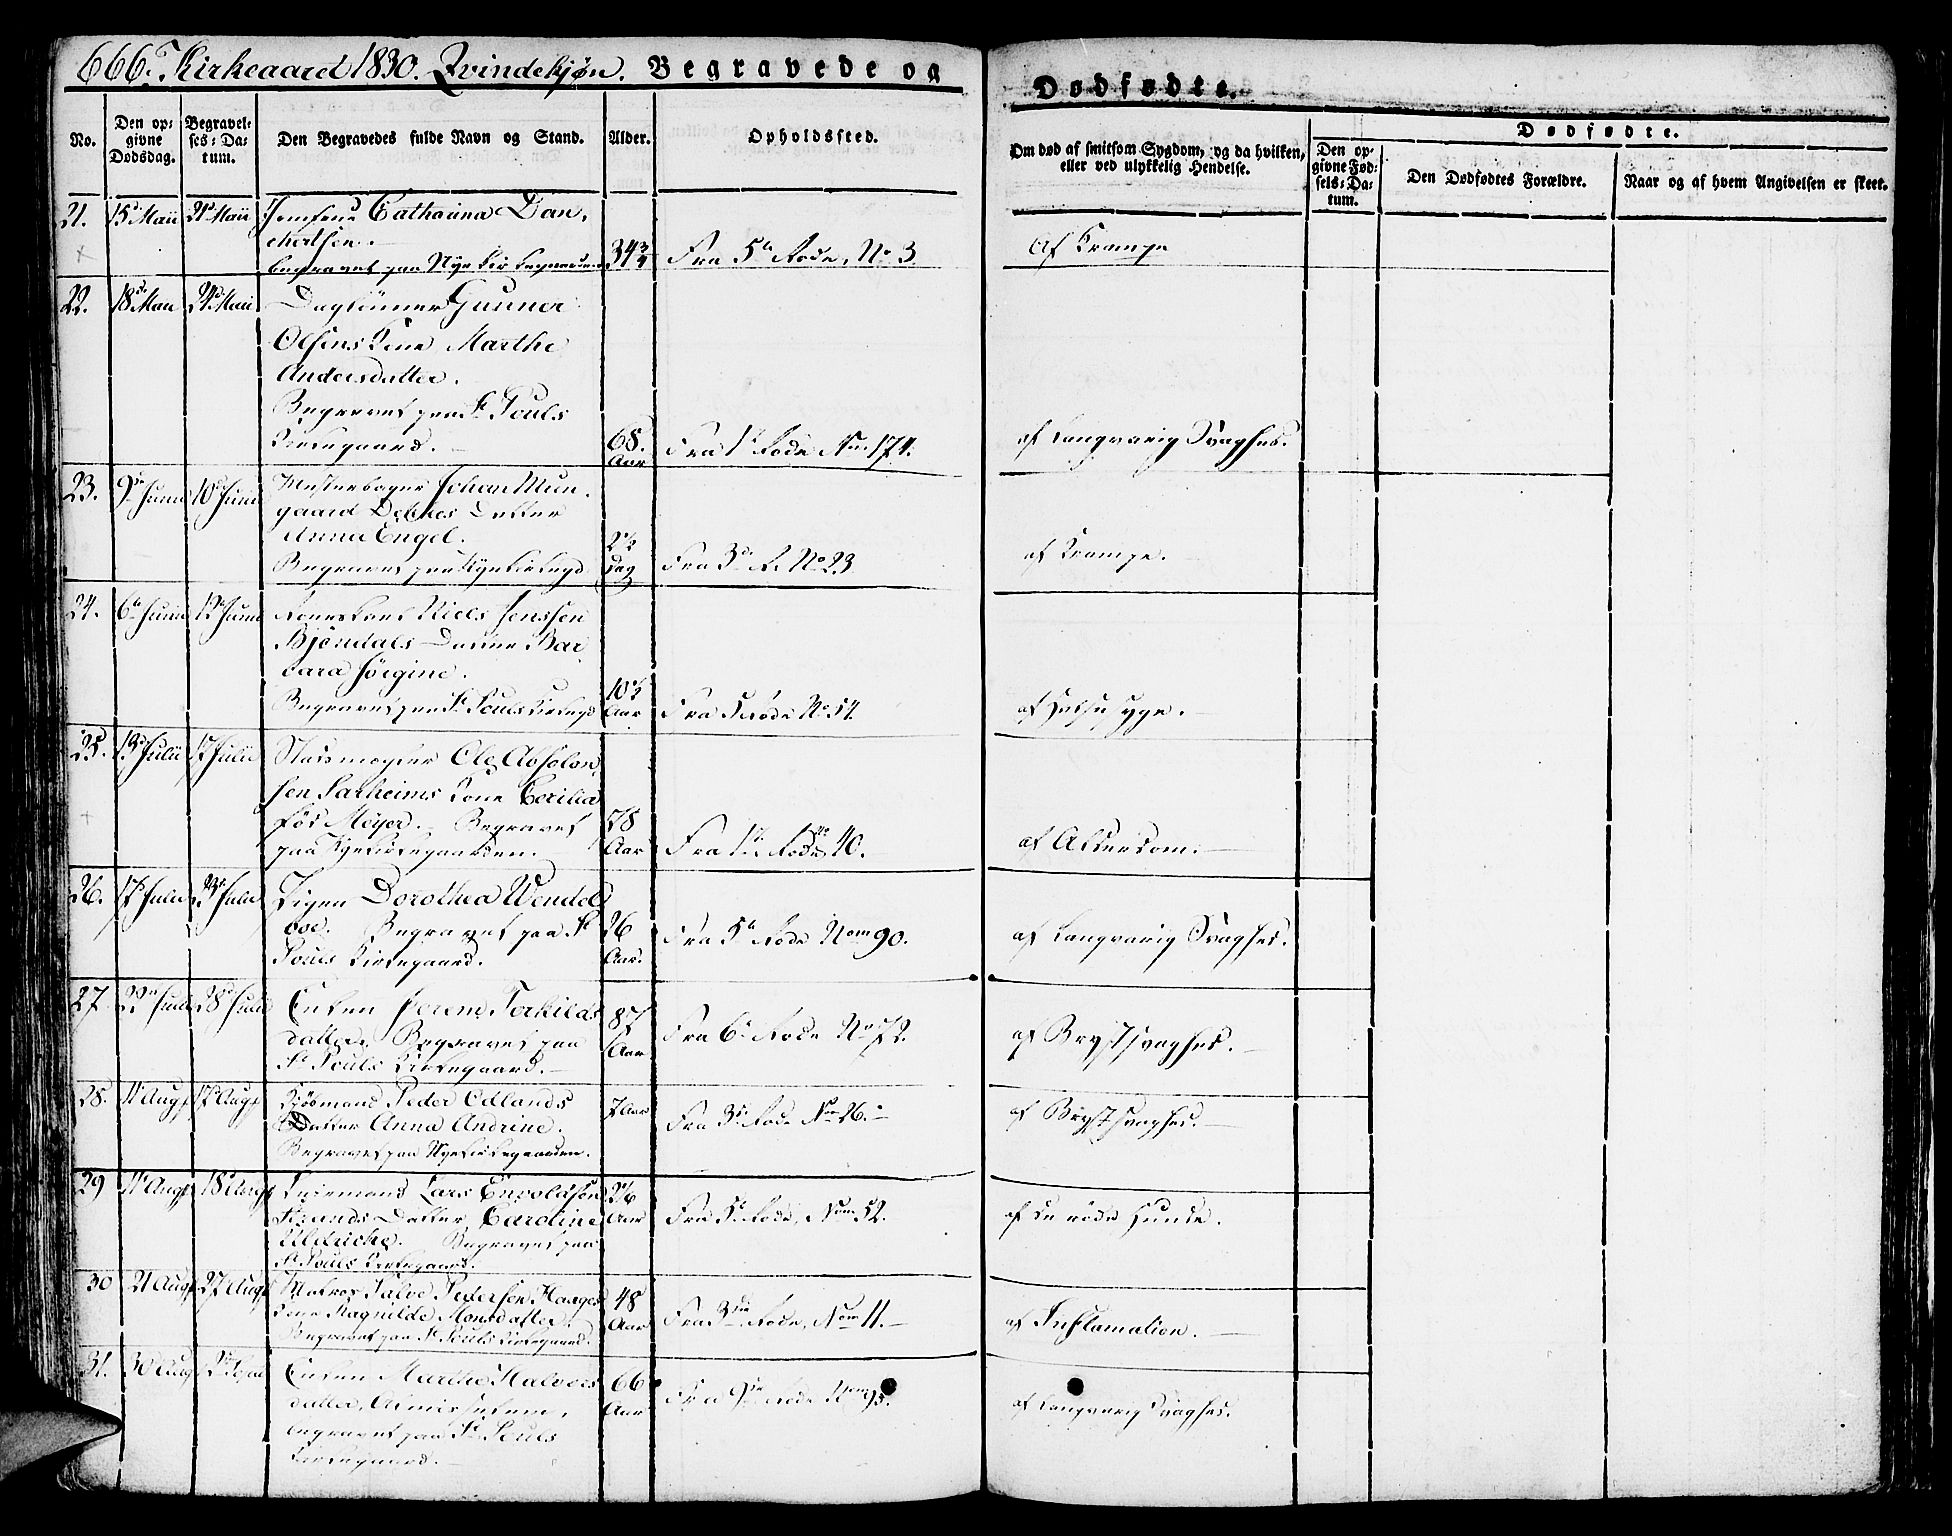 666. Kirkeaaret 1830. Qvindekjøn. Begravede og Dødfødte.
No.
Den opgivne Dødsdag.
Begravelses-Datum.
Den Begravedes fulde Navn og Stand.
Alder.
Opholdssted.
Om død af smitsom Sygdom, og da hvilken, eller ved ulykkelig Hendelse.
Dødfødte.
Den opgivne Fødsels-Datum.
Den Dødfødtes Forældre.
Naar og af hvem Angivelsen er skeet.
21. 15 Maii 21 Maii Jomfrue Catharina Dan-
chertsen.
begravet paa Nye Kirkegaarden 34 3/4 Fra 5 Rode, No 3. Af Krampe
22. 18 Maii 24 Maii Daglønner Gunner
Olsens Kone Marthe
Andersdatter.
Begravet paa St. Pouls
Kirkegaard. 68. Aar Fra 1 Rode No 174. af Langvarig Svaghed.
23. 9 Junii 10 Junii Mesterbager Johan Mun-
gaard Dekkes Datter
Anna Engel.
Begravet paa Nye Kirkegd 2 1/2 Dag Fra 3 R. No 23 af Krampe.
24. 6 Junii 12 Junii Niels Jenssen
Bjøndals Datter Bar-
bara Jørgine.
Begravet paa St. Pouls Kirkegd 10 1/2 Aar Fra 5 Rode No 57. af Halssyge.
25. 13 Julii 17 Julii Ole Absolon-
sen Sarheims Kone Cecilia
fød Meyer. Begravet
paa Nye Kirkegaarden. 78 Aar Fra 1 Rode No 40. af Alderdom.
26. 17 Julii 23 Julii Pigen Dorothea Wendel-
boe. Begravet paa St.
Pouls Kirkegaard. 26 Aar. Fra 5 Rode Nom 90. af Langvarig Svaghed.
27. 22 28 Enken Joren Torkilds
datter. Begravet paa
St. Pouls Kirkegaard. 87 Aar Fra 6 Rode No 72. af Brystsvaghed.
28. 11 Augs 17 Augs Kjøbmand Peder Odlands
Datter Anna Andrine.
Begravet paa Nye Kirkegaarden. 7 Aar Fra 3 Rode No 26. af Brystsvaghed.
29 11 Augs 18 Augs Lars Envoldsen
Strands Datter Caroline
Uldricke. Begravet paa
St. Pouls Kirkegaard. 2 1/6 Aar Fra 5 Rode, Nom 52. af de røde Hunde.
30 21 Augs 27 Augs Matros Salve Pedersen Haages
Kone Ragnilde Monsdatter.
Begravet paa St. Pouls Kirkegaard. 48 Aar Fra 3 Rode, Nom 11. af Inflamation.
31. 30 Aug 2 Enken Marthe Halvors
datter, Almisselem,
begravet paa St. Pouls
Kirkegaard. 66 Aar Fra 9 Rode Nom 95. af Langvarig Svaghed.